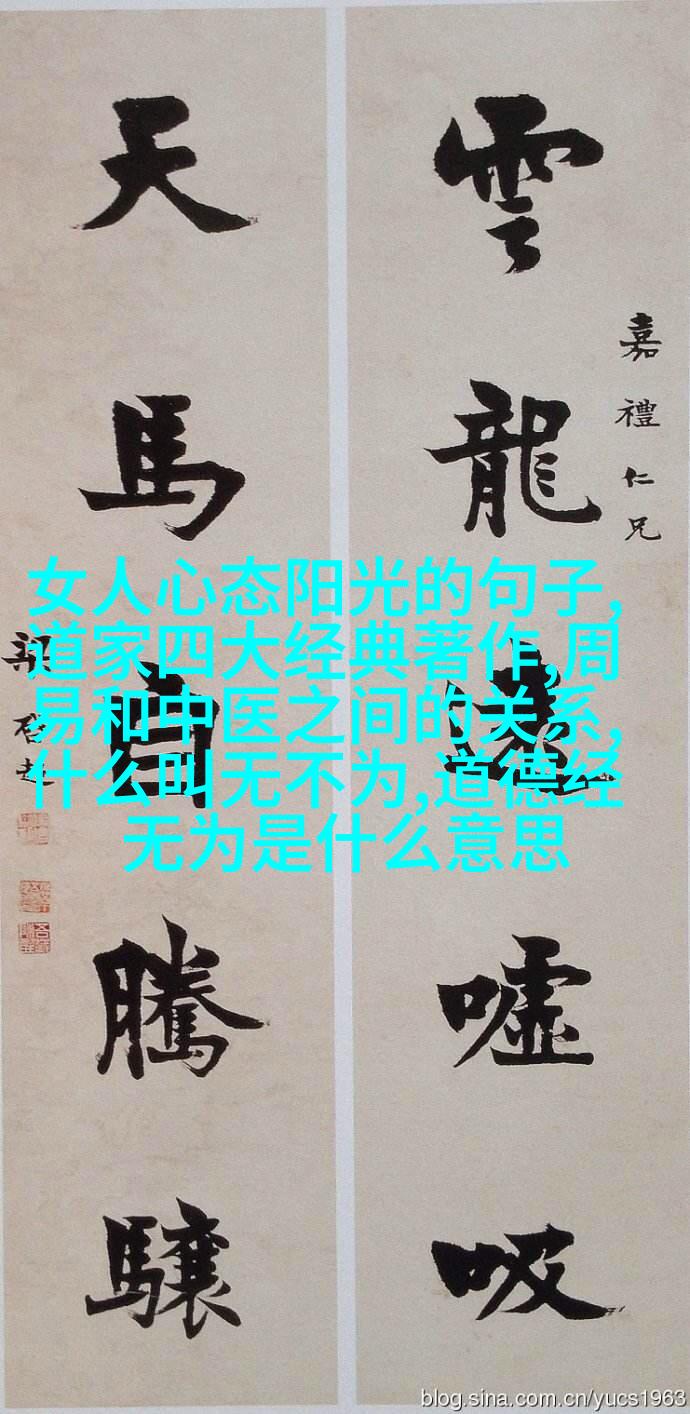 嘉禮仁兄
雲龍遠噓吸
天馬自騰驤
梁启超
女人心态阳光的句子,
道家四大经典著作,周
易和中医之间的关系,
什么叫无不为,道德经
无为是什么意思
blog.sina.com.cn/yucs1963